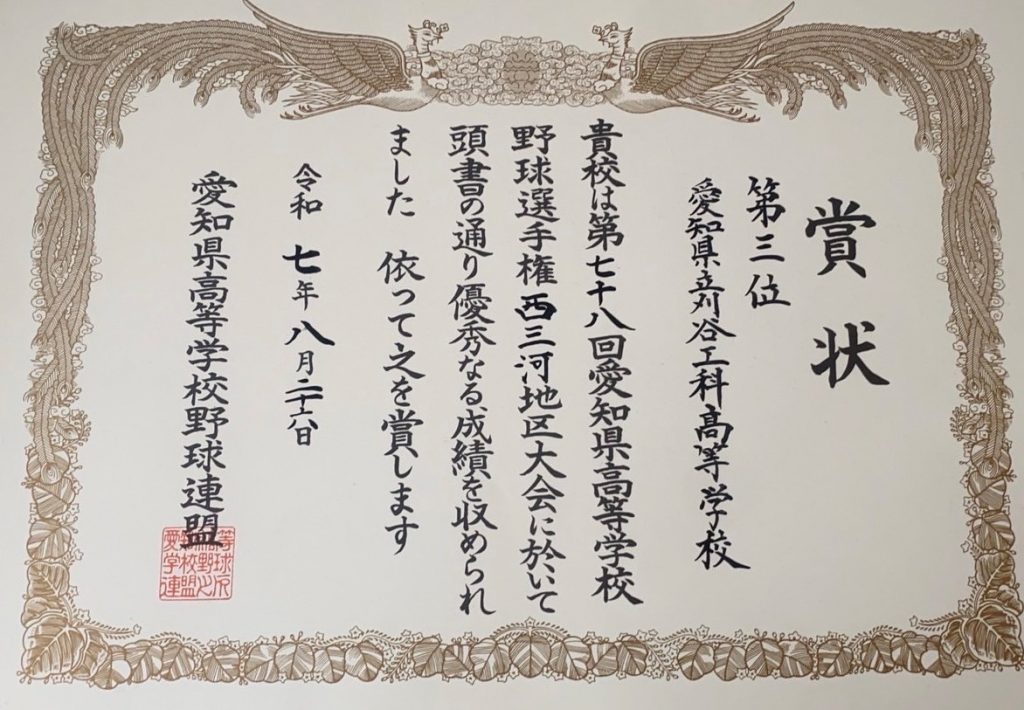 賞状
第三位
愛知県立刈谷工科高等学校
貴校は第七十八回愛知県高等学校
野球選手権西三河地区大会に於いて
頭書の通り優秀なる成績を収められ
ました 依って之を賞します
令和 七年 八月二十六日
愛知県高等学校野球連盟